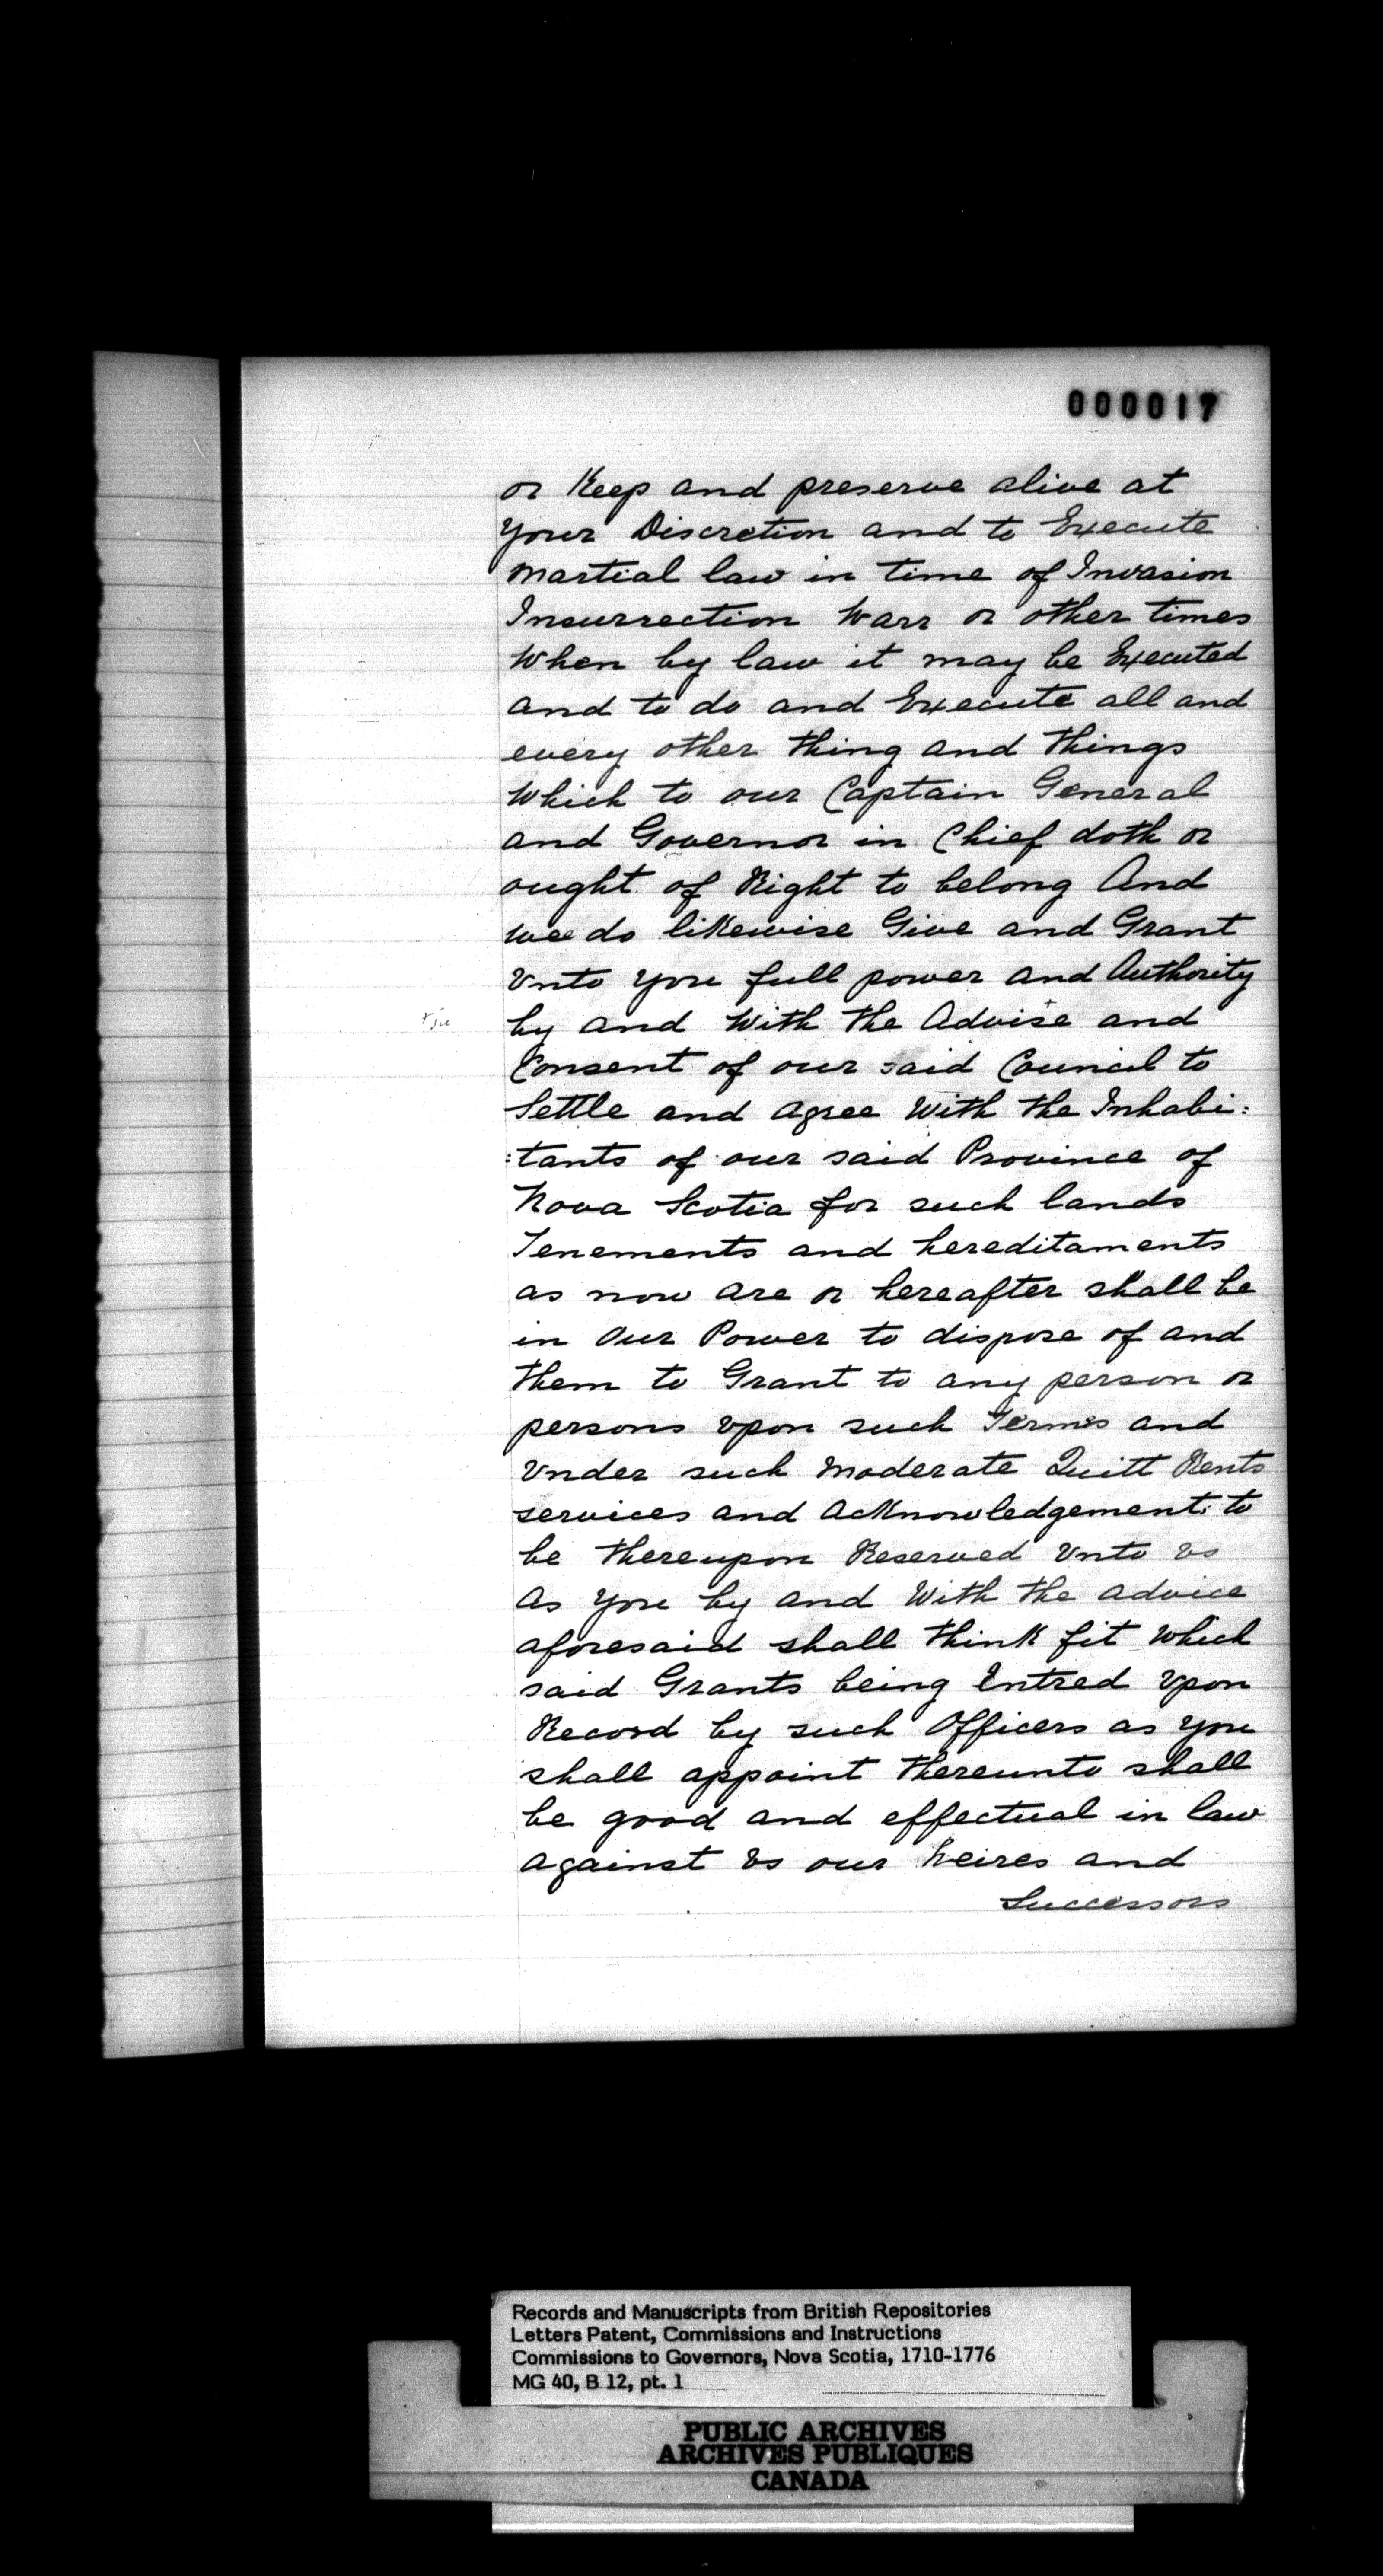 000017
or Keep and preserve alive at
your Discretion and to Execute
Martial law in time of Invasion
Insurrection Warr or other times
When by law it may be Executed
and to do and Execute all and
every other thing and things
Which to our Captain General
and Governor in Chief doth or
ought of Right to belong And
wee do likewise Give and Grant
Vnto you full power and Authority
+ sic
by and With the Advise+ and
Consent of our said Council to
Settle and agree With the Inhabi:
:tants of our said Province of
Nova Scotia for such lands
Tenements and hereditaments
as now are or hereafter shall be
in Our Power to dispose of and
them to Grant to any person or
persons vpon such Termes and
Vnder such Moderate Quitt Rents
services and acKnowledgements to
be thereupon Reserved Vnto Vs
As you by and With the advice
aforesaid shall thinK fit Which
said Grants being Entred Vpon
Record by such Officers as you
shall appoint thereunto shall
be good and effectual in law
against Vs our heires and
Successors
Records and Manuscripts from British Repositories
Letters Patent, Commissions and Instructions
Commissions to Governors, Nova Scotia, 1710-1776
MG 40, B 12, pt. 1
PUBLIC ARCHIVES
ARCHIVES PUBLIQUES
CANADA